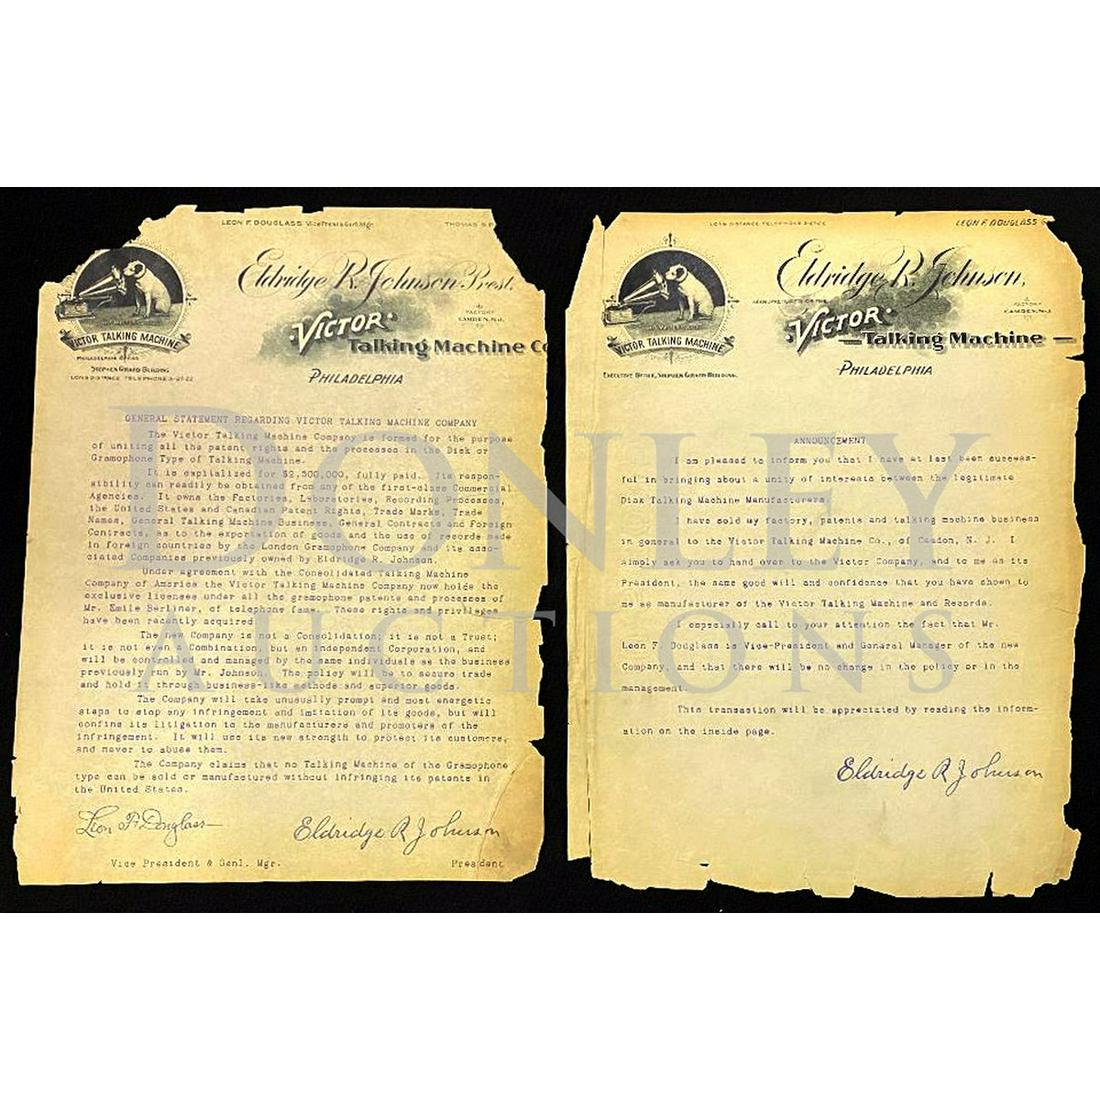 LEON F. DOUGLASS Vice Prest & Genl. Mgr.
THOMAS S. P
Eldridge R. Johnson Prest.
VICTOR
Talking Machine Co
FACTORY
CAMDEN, N.J.
VICTOR TALKING MACHINE
PHILADELPHIA OFFICE
STEPHEN GIRARD BUILDING
LONG DISTANCE TELEPHONE 3-27-22
PHILADELPHIA
GENERAL STATEMENT REGARDING VICTOR TALKING MACHINE COMPANY
The Victor Talking Machine Company is formed for the purpose
of uniting all the patent rights and the processes in the Disk or
Gramophone Type of Talking Machine.
It is capitalized for $2,500,000, fully paid. Its respon-
sibility can readily be obtained from any of the first-class Commercial
Agencies. It owns the Factories, Laboratories, Recording Processes,
the United States and Canadian Patent Rights, Trade Marks, Trade
Names, General Talking Machine Business, General Contracts and Foreign
Contracts, as to the exportation of goods and the use of records made
in foreign countries by the London Gramophone Company and its asso-
ciated Companies previously owned by Eldridge R. Johnson.
Under agreement with the Consolidated Talking Machine
Company of America the Victor Talking Machine Company now holds the
exclusive licenses under all the gramophone patents and processes of
Mr. Emile Berliner, of telephone fame. These rights and privileges
have been recently acquired.
The new Company is not a Consolidation; it is not a Trust;
it is not even a Combination, but an independent Corporation, and
will be continued and managed by the same individuals as the business
previously run by Mr. Johnson. The policy will be to secure trade
and hold it through business-like methods and superior goods.
The Company will take unusually prompt and most energetic
steps to stop any infringement and imitation of its goods, but will
confine its litigation to the manufacturers and promoters of the
infringement. It will use its new strength to protect its customers,
and never to abuse them.
The Company claims that no Talking Machine of the Gramophone
type can be sold or manufactured without infringing its patents in
the United States.
Leon F. Douglass
Eldridge R Johnson
Vice President & Genl. Mgr.
President
LONG DISTANCE TELEPHONE
LEON F. DOUGLASS
Eldridge R. Johnson,
MANUFACTURER OF THE
VICTOR
Talking Machine
FACTORY
CAMDEN, N.J.
VICTOR TALKING MACHINE
EXECUTIVE OFFICE, STEPHEN GIRARD BUILDING.
PHILADELPHIA
ANNOUNCEMENT
I am pleased to inform you that I have at last been success-
ful in bringing about a unity of interests between the legitimate
Disk Talking Machine Manufacturers.
I have sold my factory, patents and talking machine business
in general to the Victor Talking Machine Co., of Camden, N. J. I
simply ask you to hand over to the Victor Company, and to me as its
President, the same good will and confidence that you have shown to
me as manufacturer of the Victor Talking Machine and Records.
I especially call to your attention the fact that Mr.
Leon F. Douglass is Vice-President and General Manager of the new
Company, and that there will be no change in the policy or in the
management.
This transaction will be appreciated by reading the inform-
ation on the inside page.
Eldridge R Johnson
DONLEY
AUCTIONS